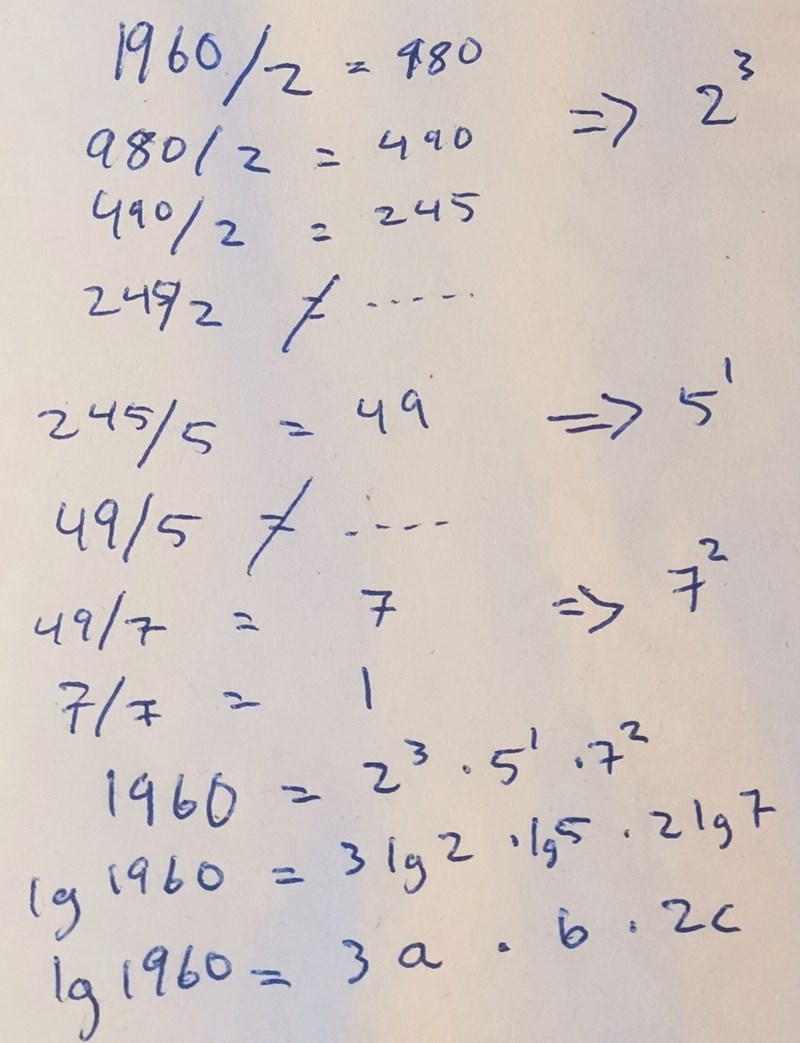 1960/2 = 980
980/2 = 490 => 2³
490/2 = 245
245/2 ≠ ------
245/5 = 49 => 5¹
49/5 ≠ ----
49/7 = 7 => 7²
7/7 = 1
1960 = 2³ · 5¹ · 7²
lg 1960 = 3 lg 2 · lg 5 · 2 lg 7
lg 1960 = 3a · b · 2c